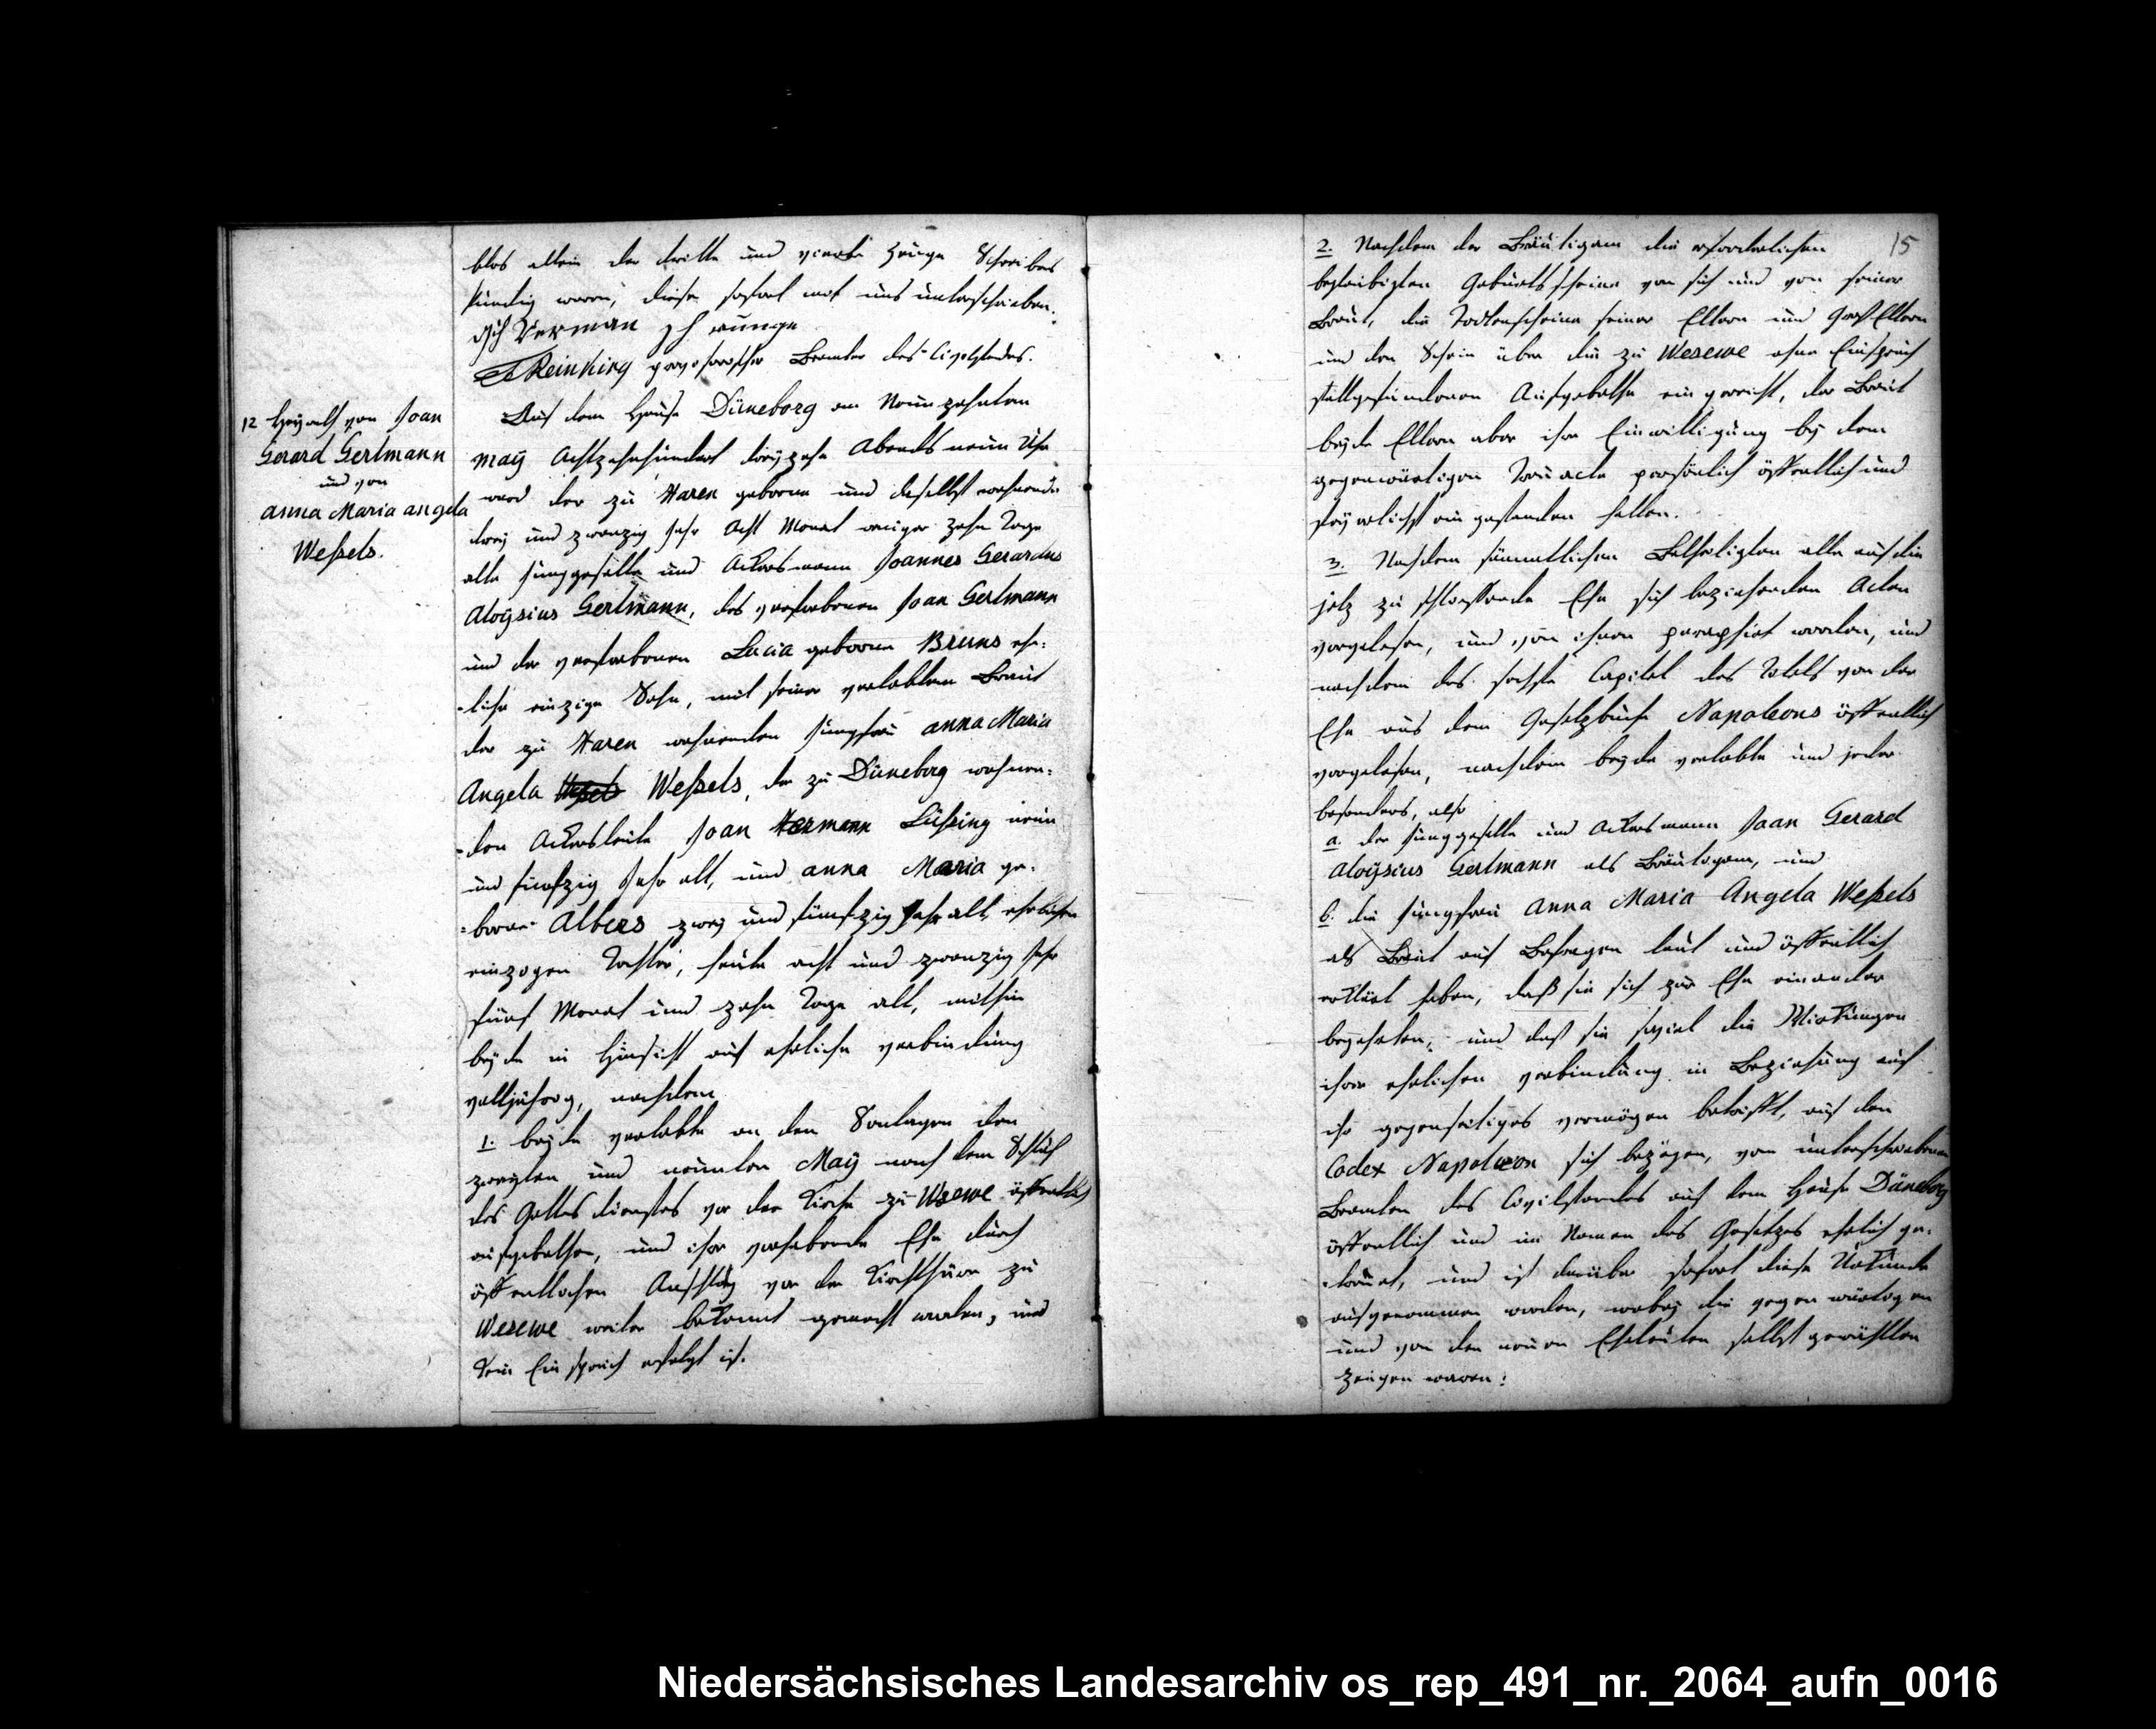 blos allein der dritte und vierte Zeuge Schreibens
kundig waren, diese sofort mit uns unterschrieben.
Verman
Reinking provisorischer Beamter des Civilstandes.
12 Heyrath von Joan
Gerard Gerlmann
und von
anna Maria angela
Weßels.
Auf dem Hause Düneborg am Neunzehnten
May Achtzehnhundert dreyzehn Abends neun Uhr
ward der zu Haren geborene und daselbst wohnende
drey und zwanzig Jahr Acht Monat weniger zehn Tage
alte Junggeselle und Ackersmann Joannes Gerardus
Aloÿsius Gerlmann, des verstorbenen Joan Gerlmann
und der verstorbenen Lucia geborene Bruns ehe-
-liche einzige Sohn, mit seiner verlobten Braut
der zu Haren wohnenden Jungfrau anna Maria
Angela Weßels, der zu Düneborg wohnen-
-den Ackersleute Joan Hermann Lüßing neun
und fünfzig Jahr alt, und anna Maria ge-
-borne Albers zwey und fünfzig Jahr alt, ehelichen
einzigen Tochter, heute acht und zwanzig Jahr
fünf Monat und zehn Tage alt, mithin
beyde in Hinsicht auf eheliche verbindung
volljährig, nachdem
1. beyde verlobte an den Sontagen den
zweyten und neunten May nach dem Schluß
des Gottesdienstes vor der Kirche zu Wesewe öffentlich
aufgebothen, und ihre vorhabende Ehe durch
öffentlichen Anschlag vor der Kirchthüre zu
Wesewe weiter bekannt gemacht worden, und
kein Einspruch erfolgt ist.
15
2. Nachdem der Bräutigam die erforderlichen
beglaubigten Geburtsscheine von sich und von seiner
Braut, die Todtenscheine seiner Eltern und GroßEltern
und den Schein über die zu Wesewe ohne Einspruch
stattgefundenen Aufgebothe eingereicht, der Braut
beyde Eltern aber ihre Einwilligung bey dem
gegenwärtigen Trauacte persönlich öffentlich und
feyerlichst eingestanden hatten.
3. Nachdem sämmtlichen Betheiligten alle auf die
jetz zu schliessende Ehe sich beziehenden Acten
vorgelesen, und von ihnen paraphirt worden, und
nachdem das sechste Capitel des Titels von der
Ehe aus dem Gesetzbuche Napoleons öffentlich
vorgelesen, nachdem beyde verlobte und jeder
besonders, also
a. der Junggeselle und Ackersmann Joan Gerard
Aloÿsius Gerlmann als Bräutigam, und
b. die Jungfrau Anna Maria Angela Weßels
als Braut auf Befragen laut und öffentlich
erklärt haben, daß sie sich zur Ehe einander
begehrten, und daß sie soviel die Wirkungen
ihrer ehelichen verbindung in Beziehung auf
ihr gegenseitiges vermögen betrifft, auf den
Codex Napoleon sich bezögen, vom unterschriebenen
Beamten des Civilstandes auf dem Hause Düneborg
öffentlich und im Namen des Gesetzes ehelich ge-
-trauet, und ist darüber sofort diese Urkunde
aufgenommen worden, wobey die gegenwärtigen
und von den neuen Eheleuten selbst gewählten
Zeugen waren:
Niedersächsisches Landesarchiv os_rep_491_nr._2064_aufn_0016